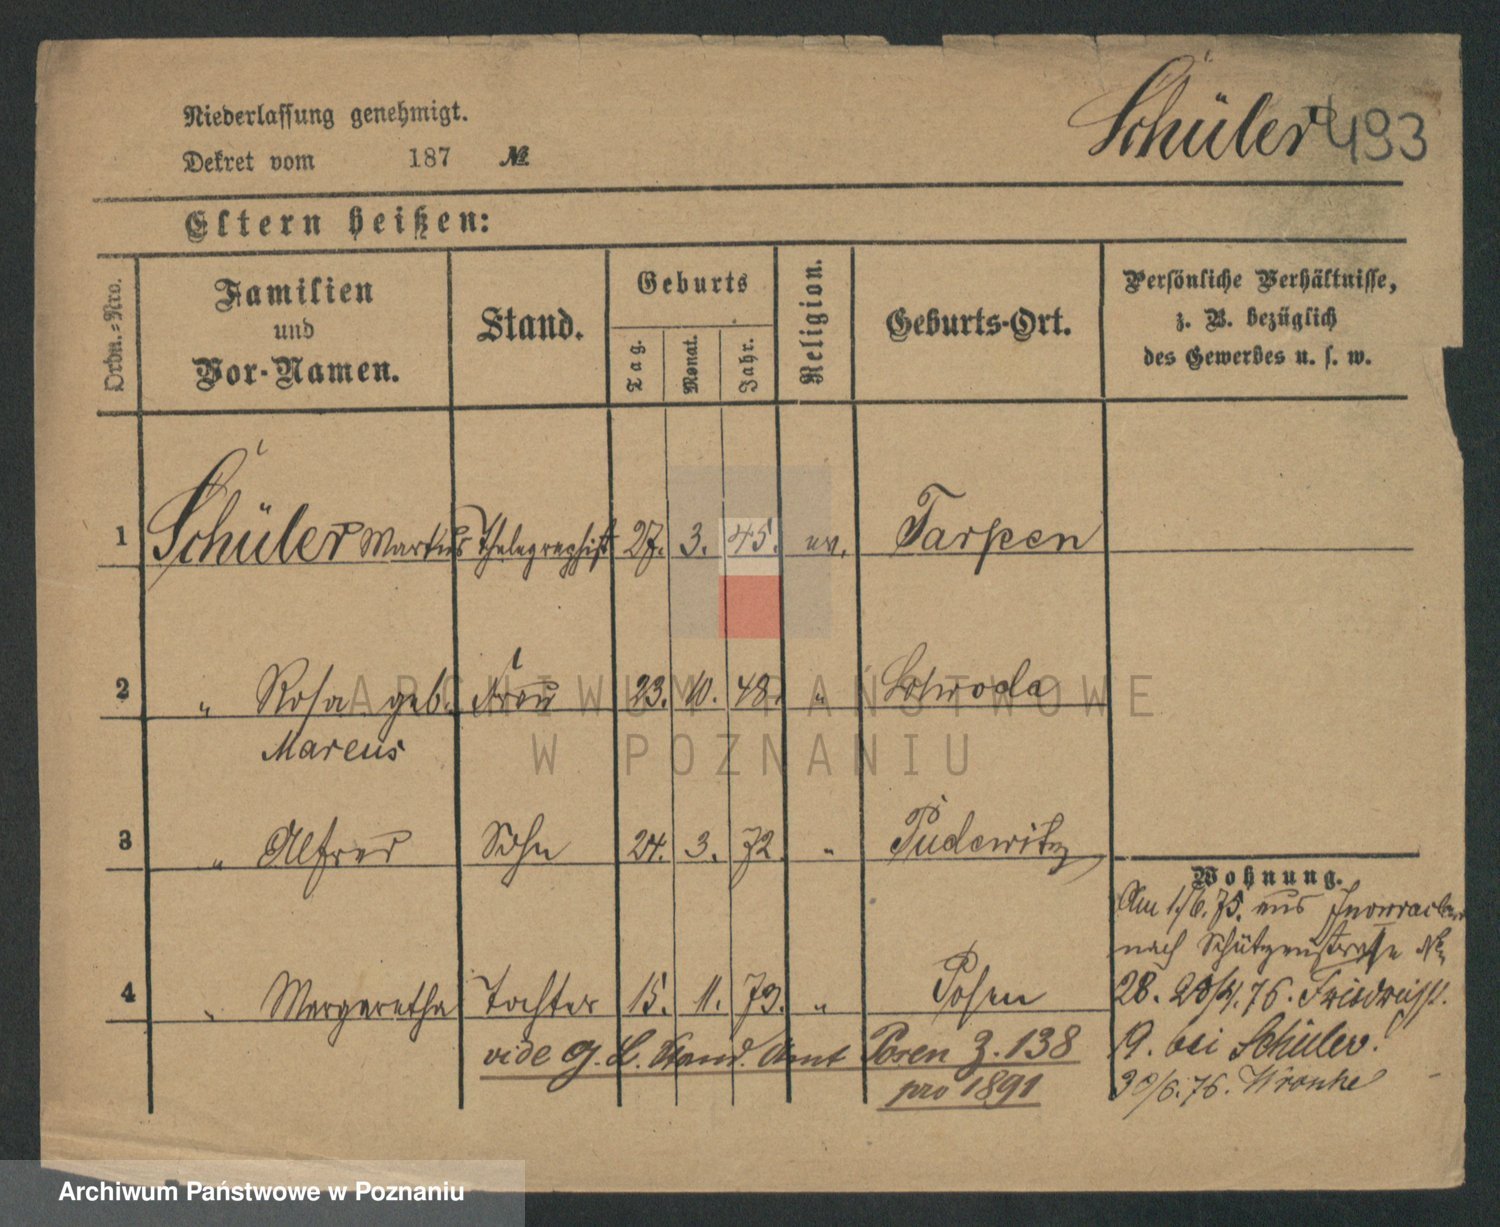 Niederlassung genehmigt.
Dekret vom 187 №
Schüler 493
Eltern heißen:
Ordn.=Nro.
Familien
und
Vor-Namen.
Stand.
Geburts
Tag.
Monat.
Jahr.
Religion.
Geburts-Ort.
Persönliche Verhältnisse,
z. B. bezüglich
des Gewerbes u. s. w.
1 Schüler Markus Thelegraphist 27. 3. 45. Tarpen
2 " Rosa geb. Frau 23. 10. 48. " Schroda
Marcus
3 " Alfred Sohn 24. 3. 72. " Pudewitz
Wohnung.
Am 1./6. 75. aus
nach Schützenstrasse No
4 " Margaretha Tochter 15. 11. 73. " Posen
28. 20/4. 76. Friedrichst.
19. bei Schüler.
30/6. 76. Wronke
vide G. S. Stand. Amt Posen Z. 138
pro 1891
ARCHIWUM PAŃSTWOWE
W POZNANIU
Archiwum Państwowe w Poznaniu